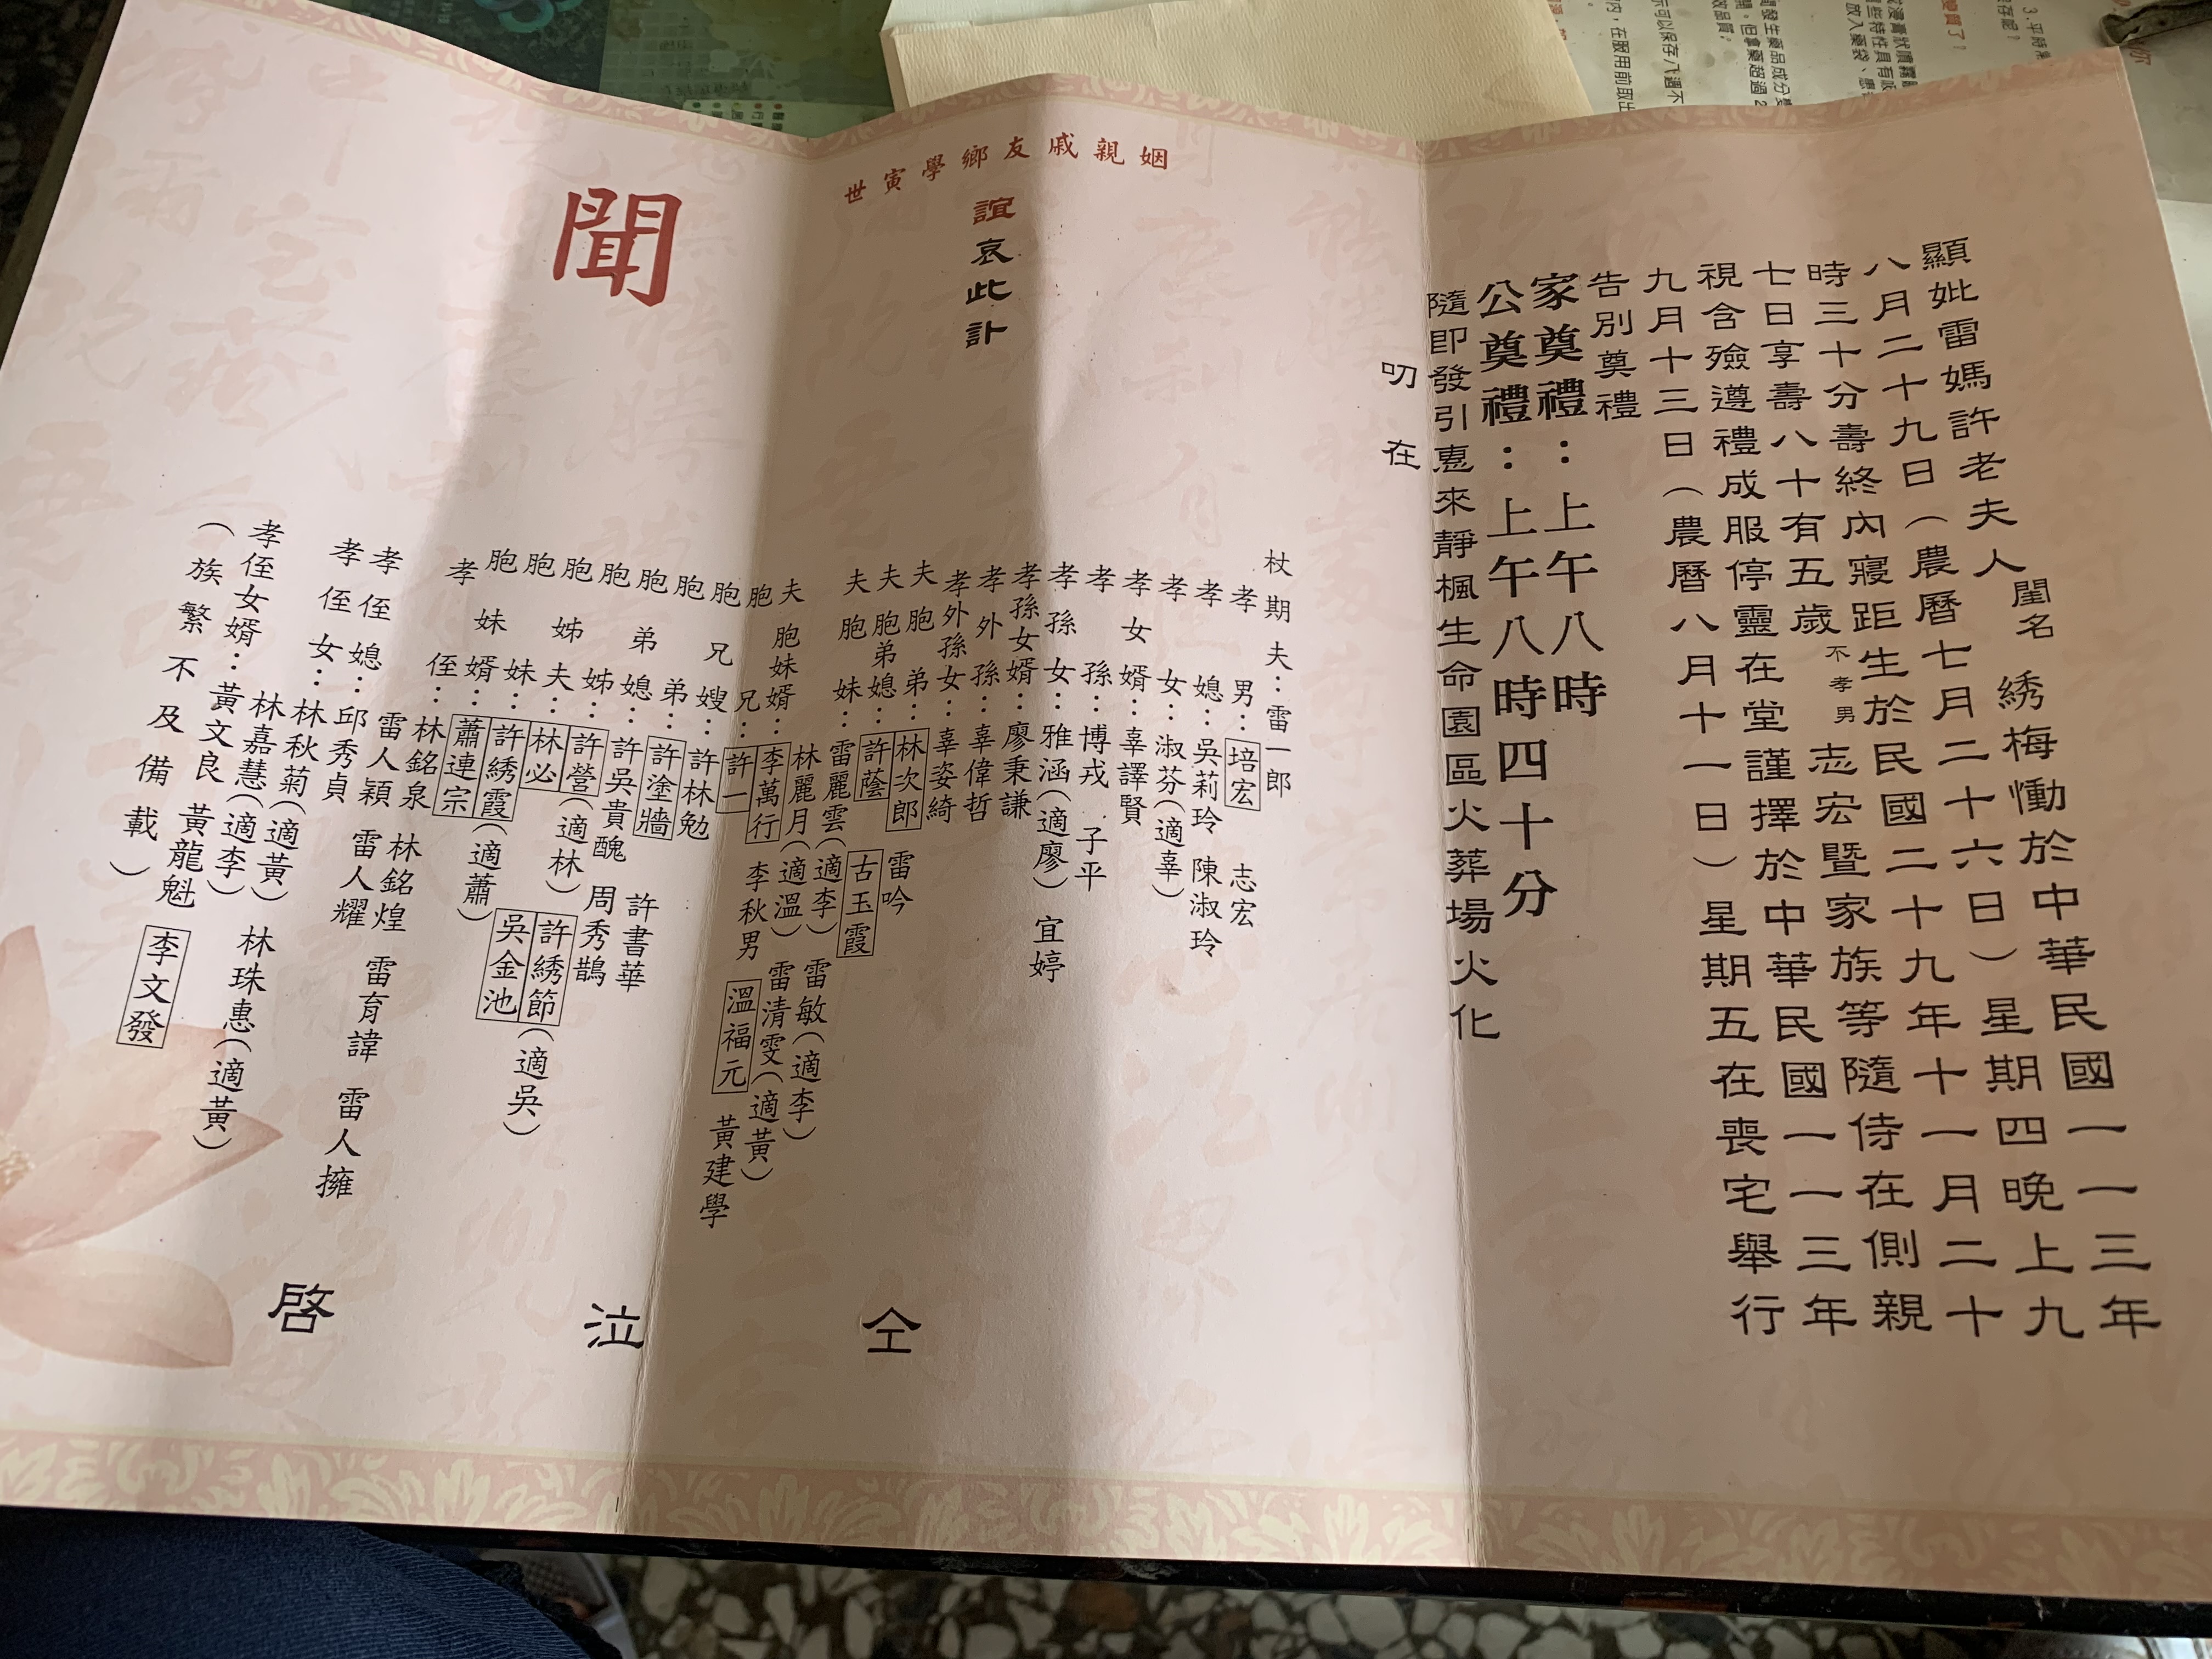 顯妣雷媽許老夫人閨名 綉梅慟於中華民國一一三年
八月二十九日(農曆七月二十六日)星期四晚上九
時三十分壽終內寢距生於民國二十九年十一月二十
七日享壽八十有五歲不孝男志宏暨家族等隨侍在側親
視含殮遵禮成服停靈在堂謹擇於中華民國一一三年
九月十三日(農曆八月十一日)星期五在喪宅舉行
告別奠禮
家奠禮:上午八時
公奠禮:上午八時四十分
隨即發引惠來靜楓生命園區火葬場火化
叨在
姻親戚友鄉學寅世
誼哀此訃
聞
杖期夫:雷一郎
孝男:培宏 志宏
孝媳:吳莉玲 陳淑玲
孝女:淑芬(適辜)
孝女婿:辜譯賢
孝孫:博戎 子平
孝孫女:雅涵(適廖) 宜婷
孝孫女婿:廖秉謙
孝外孫:辜偉哲
孝外孫女:辜姿綺
夫胞弟:林次郎 雷吟
夫胞弟媳:許蔭 古玉霞
夫胞妹:雷麗雲(適李) 雷敏(適李)
林麗月(適溫) 雷清雯(適黃)
夫胞妹婿:李萬行 李秋男 溫福元 黃建學
胞兄:許一
胞兄嫂:許林勉
胞弟:許塗牆 許書華
胞弟媳:許吳貴醜 周秀鵲
胞姊:許營(適林) 許綉節(適吳)
胞姊夫:林必 吳金池
胞妹:許綉霞(適蕭)
胞妹婿:蕭連宗
孝侄:林銘泉 林銘煌
雷人穎 雷人耀 雷育諱 雷人擁
孝侄媳:邱秀貞
孝侄女:林秋菊(適黃) 林珠惠(適黃)
林嘉慧(適李)
孝侄女婿:黃文良 黃龍魁 李文發
(族繁不及備載)
仝 泣 啓